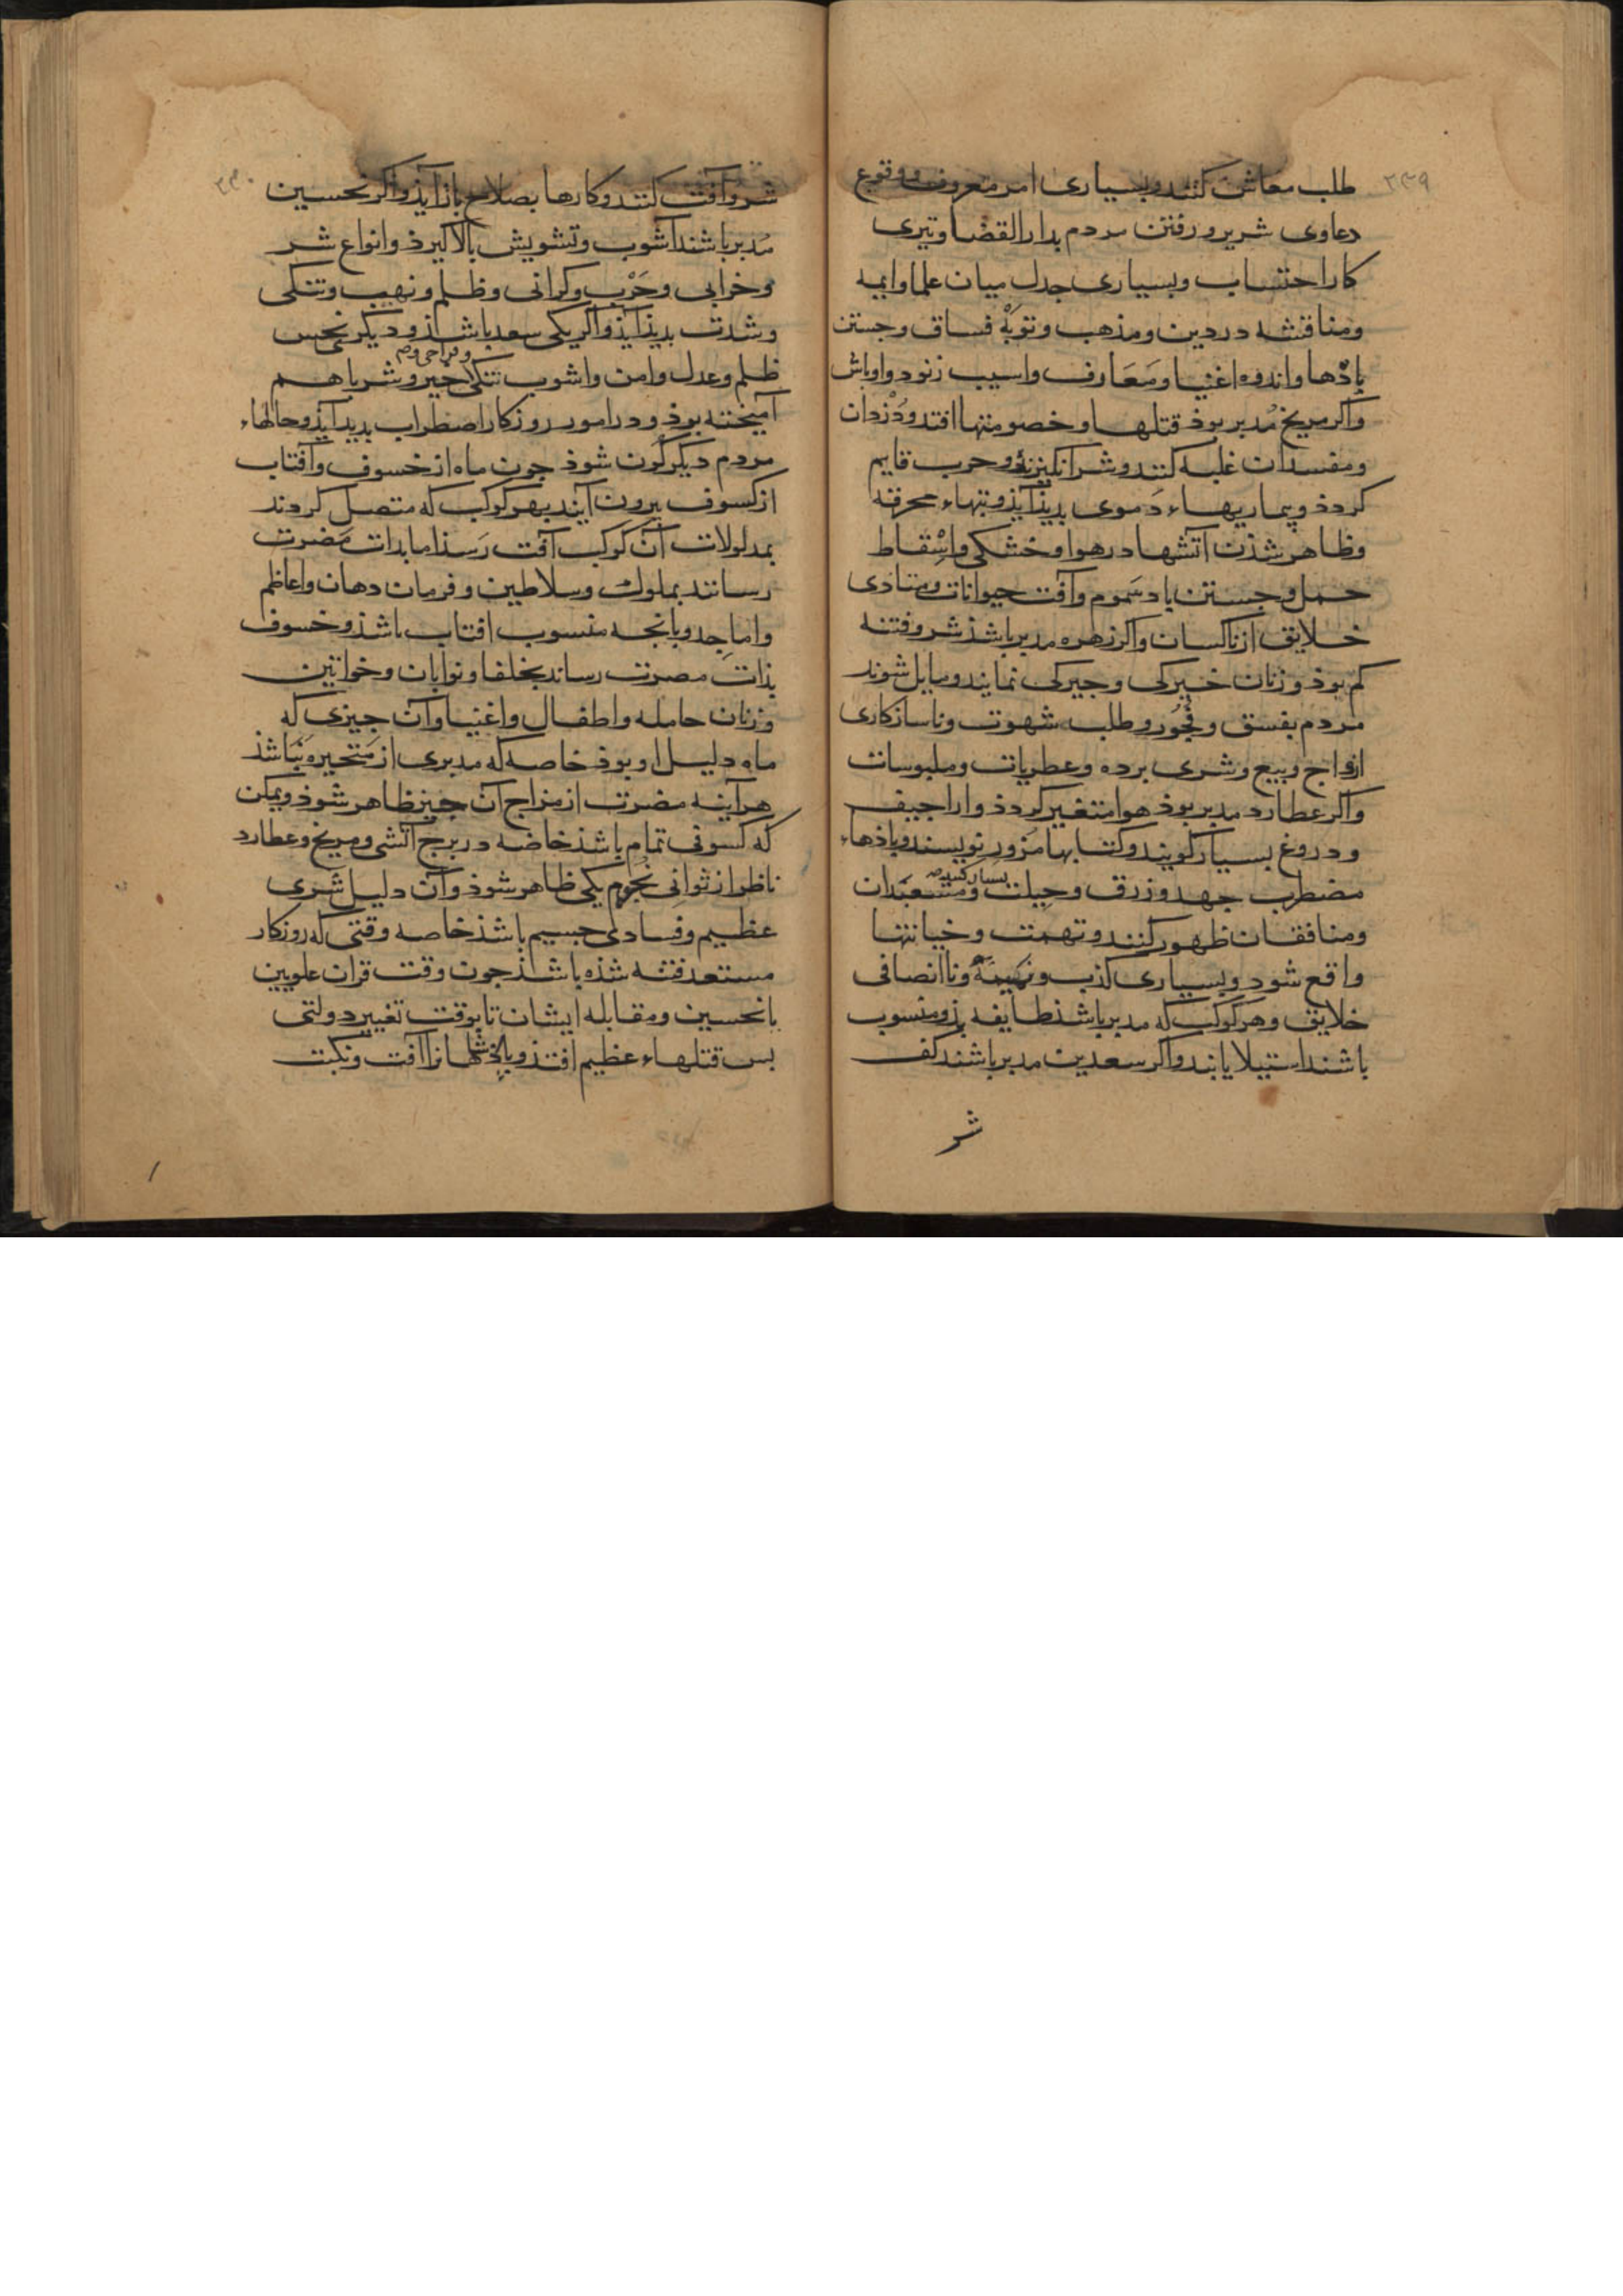 ۲۳۹
طلب معاش کنند و بسیاری امر معروف و وقوع
دعاوی شریر و رفتن مردم بدار القضا و تیری
کار احتساب و بسیاری جدل میان علما و ایمه
و مناقشه در دین و مذهب و توبهٔ فساق و جستن
باذها و اندوه اغنیا و معارف و اسیب زنود و اوباش
و اکر مریخ مدبر بوذ قتلها و خصومتها افتد و دزدان
و مفسدان غلبه کنند و شر انکیزند و حرب قایم
کردذ و بیماریهاء دموی بدیذ آیذ و تبهاء محرقه
و ظاهر شذن آتشها در هوا و خشکی و اسقاط
حمل و جستن باد سموم و آفت حیوانات و متادی
خلایق از ناکسان و اکر زهره مدبر باشذ شر و فتنه
کم بوذ و زنان خیرکی و جیرکی نمایند و مایل شوند
مردم بفسق و فجور و طلب شهوت و ناسازکاری
ازواج و بیع و شری برده و عطریات و ملبوسات
و اکر عطارد مدبر بوذ هوا متغیر کردذ و اراجیف
و دروغ بسیار کویند و کتابها مزور نویسند و باذهاء
مضطرب جهد و زرق و حیلت بسیار کنند و مشعبدان
و منافقان ظهور کنند و تهمت و خیانتها
واقع شود و بسیاری کذب و نمیمه و ناانصافی
خلایق و هر کوکب که مدبر باشذ طایفه بذو منسوب
باشند استیلا یابند و اکر سعدین مدبر باشند کف
شر
۲۴۰
شر و آفت کنند و کارها بصلاح باز آیذ و اکر نحسین
مدبر باشند آشوب و تشویش بالا کیرذ و انواع شر
و خرابی و حرب و کرانی و ظلم و نهب و تنکی
و شدت بدیذ آیذ و اکر یکی سعد باشذ و دیکر نحس
ظلم و عدل و امن و اشوب تنکی و فراخی خیر و شر با هم
آمیخته بوذ و در امور روزکار اضطراب بدید آیذ و حالهاء
مردم دیکرکون شوذ جون ماه از خسوف و آفتاب
از کسوف بیرون آیند بهر کوکب که متصل کردند
بمدلولات آن کوکب آفت رسذ اما بدات مضرت
رسانند بملوک و سلاطین و فرمان دهان و اعاظم
و اماجد و بانجه منسوب افتاب باشذ و خسوف
بذات مضرت رساند بخلفا و نوابان و خواتین
و زنان حامله و اطفال و اغنیا و آن جیزی که
ماه دلیل او بوذ خاصه که مدبری از متحیره نباشذ
هر آینه مضرت از مزاج آن جیز ظاهر شوذ و یمکن
که کسوفی تمام باشذ خاصه در برج آتشی و مریخ و عطارد
ناظر از ثوانی نجوم یکی ظاهر شوذ و آن دلیل شری
عظیم و فسادی جسیم باشذ خاصه وقتی که روزکار
مستعد فتنه شذه باشذ جون وقت قران علویین
با نحسین و مقابله ایشان تا بوقت تغییر دولتی
بس قتلهاء عظیم افتذ و باذشاهانرا آفت و نکبت